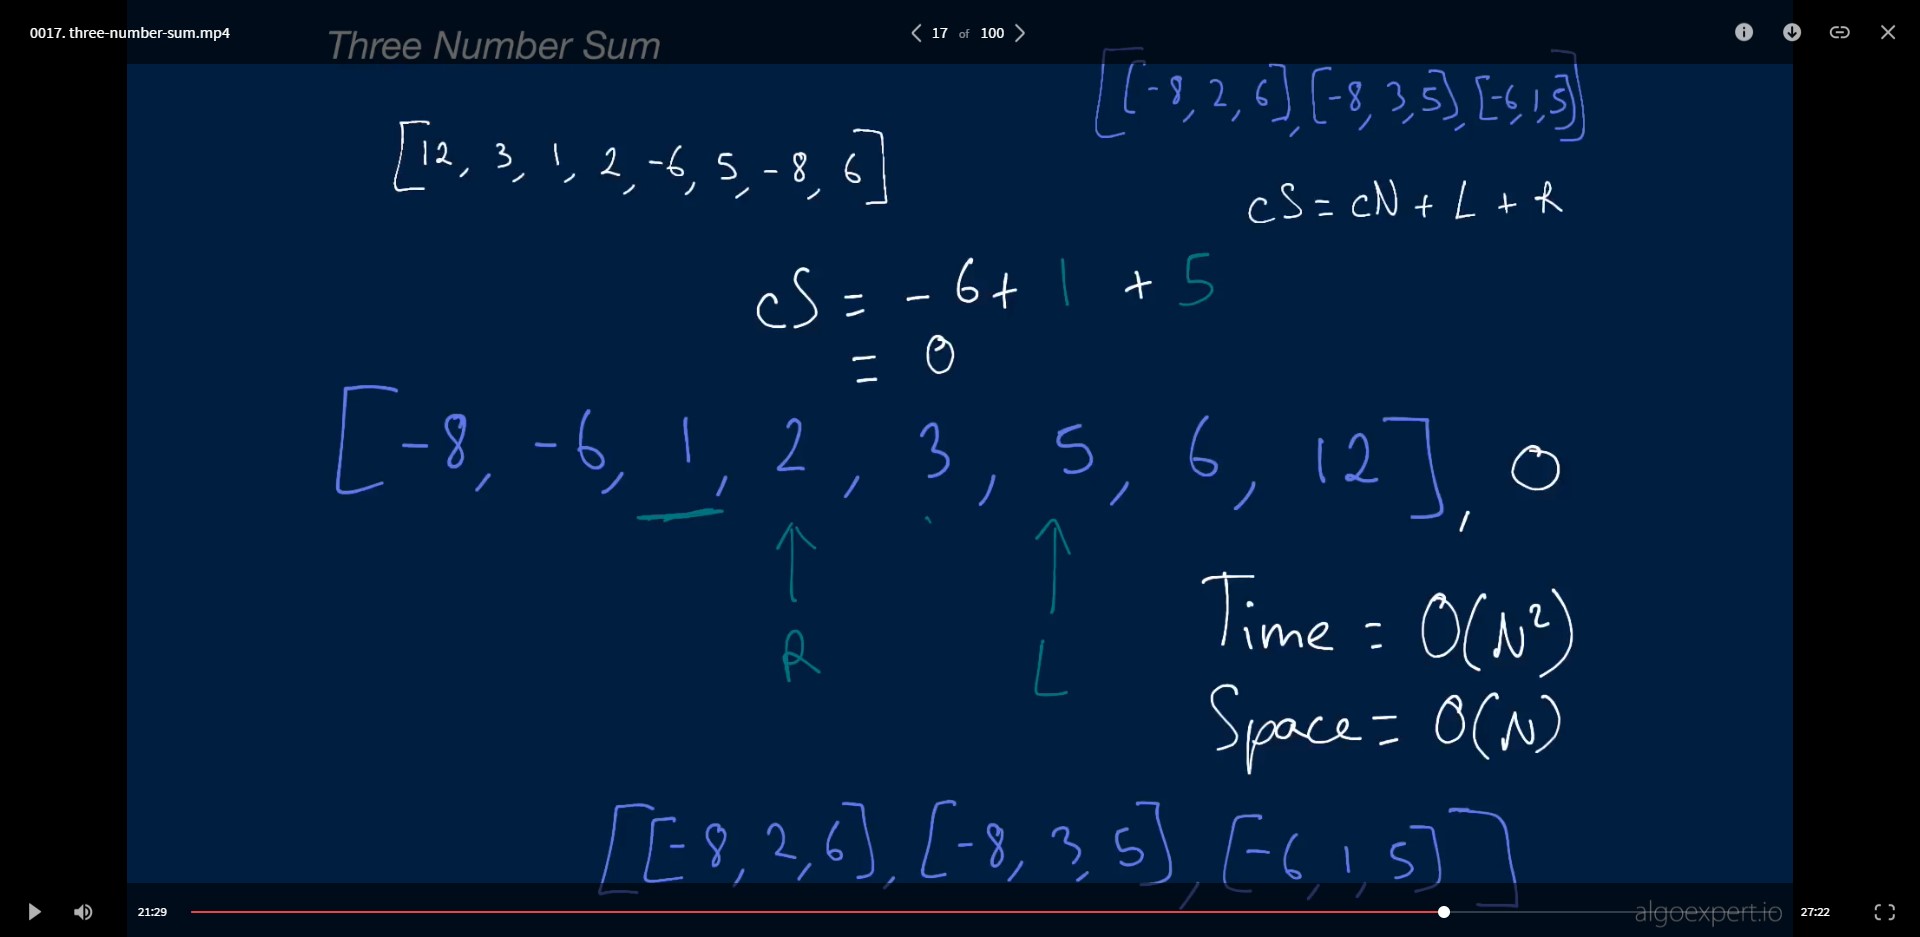 0017. three-number-sum.mp4
17 of 100
Three Number Sum
[[-8, 2, 6], [-8, 3, 5], [-6, 1, 5]]
[12, 3, 1, 2, -6, 5, -8, 6]
cS = cN + L + R
cS = -6 + 1 + 5
= 0
[-8, -6, 1, 2, 3, 5, 6, 12], 0
R L
Time = O(N²)
Space = O(N)
[[-8, 2, 6], [-8, 3, 5], [-6, 1, 5]]
21:29
algoexpert.io
27:22